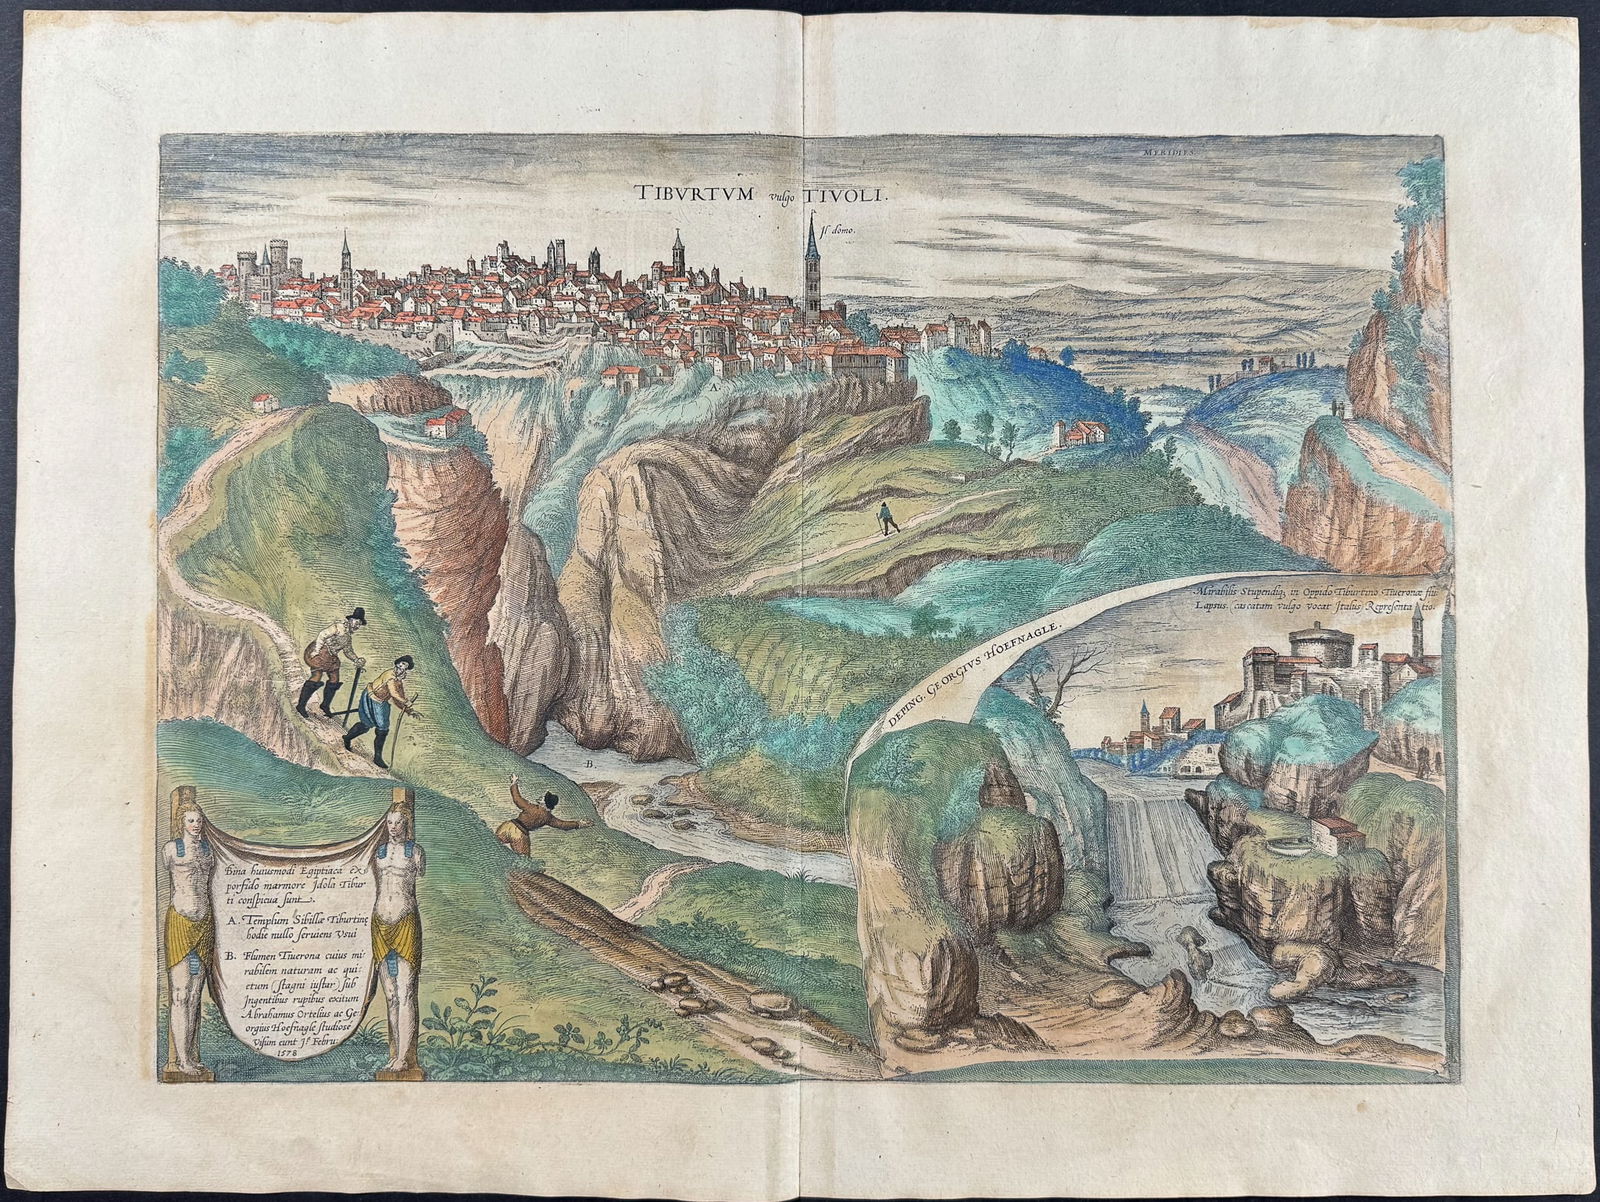 MERIDIES.
TIBVRTVM vulgo TIVOLI.
Il domo.
A.
B.
Mirabilis Stupendiq; in Oppido Tiburtino Tiueronæ flu:
Lapsus. cascatam vulgo vocat Italus Representa tio.
DEPING. GEORGIVS HOEFNAGLE.
Bina huiusmodi Egiptiaca ex
porfido marmore Idola Tibur
ti conspicua sunt.
A. Templum Sibillæ Tiburtinę
hodie nullo seruiens Vsui
B. Flumen Tiuerona cuius mi
rabilem naturam ac qui:
etum (stagni iustar) sub
Ingentibus rupibus exitum
Abrahamus Ortelius ac Ge
orgius Hoefnagle studiose
Visum eunt Iº Febru:
1578